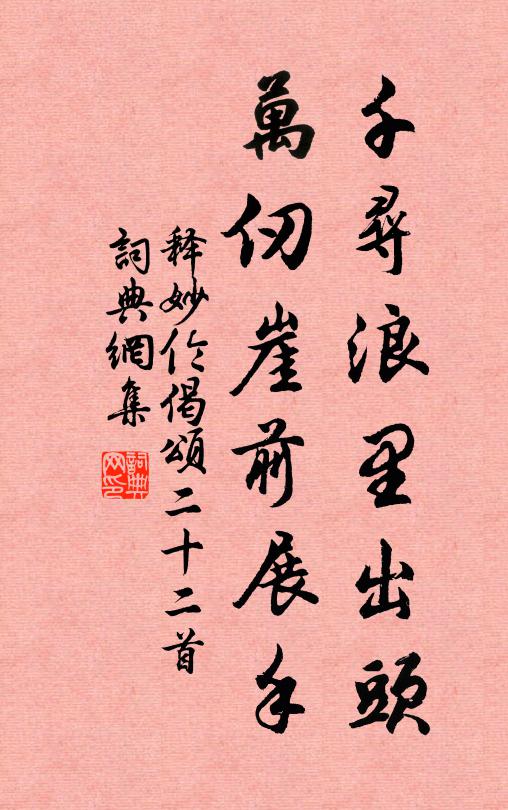 千尋浪里出頭
萬仞崖前展手
释妙伦偈頌二十二首
詞典網集
詞典網印